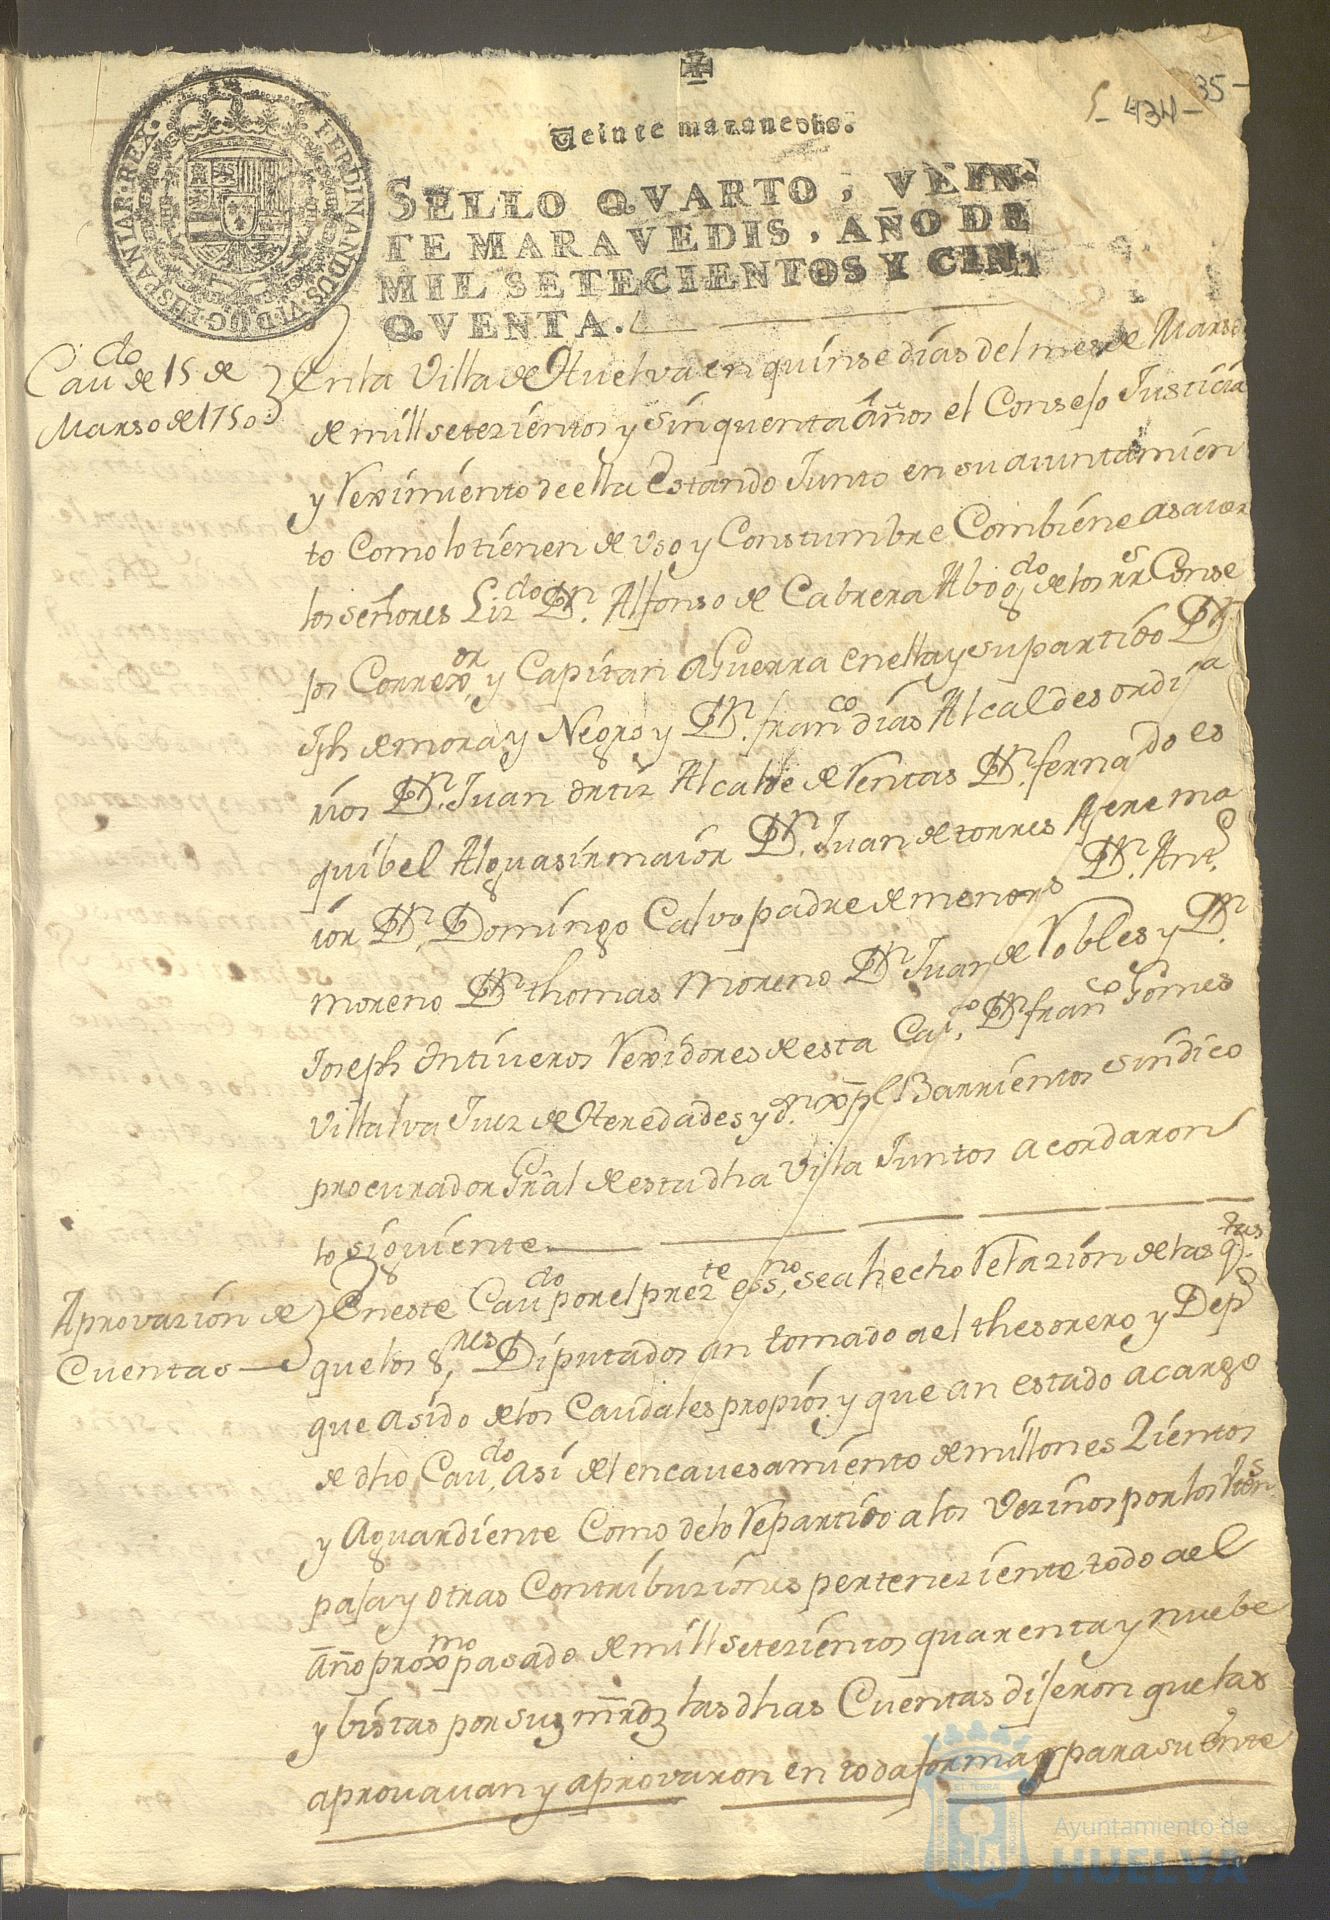 5-434-35-
Veinte maravedis.
SELLO QVARTO, VEIN-
TE MARAVEDIS, AÑO DE
MIL SETECIENTOS Y CIN-
QVENTA.
FERDINANDUS.VI.D.G.HISPANIAR.REX.
Cauдо de 15 de
Marso de 1750
En la Villa de Huelva en quinse dias del mes de Marso
de mill setezientos y sinquenta años el Consejo Justicia
y Reximiento de ella Estando Junto en su aiuntamien
to Como lo tienen de Uso y Constumbre Combiene asaver
los señores Lizdo Dn. Alfonso de Cabrera Abogdo de los Rs Conse
jos Correxor y Capitan aGuerra en ella y su partido Dn
Jph de mora y Negro y Dn. franco dias Alcaldes ordina
rios Dn. Juan ortiz Alcalde de Rentas Dn. fernado es
quibel Alguasir maior Dn. Juan de torres Afere ma
ior Dn. Domingo Calvo padre de menors Dn. Anto
moreno Dn. thomas Moreno Dn. Juan de Robles y Dn.
Joseph Ontiueros Rexidores de esta Cap. Dn. franco Gomes
Villalva Juez de Heredades y dn. xpl Barrientos sindico
procurador Gral de esta dha Villa Juntos acordaron
lo siguiente
Aprovazion de
Cuentas
En este Caudo por el prezte essno, sea hecho Relazion de las qtas
que los Sres Diputados an tomado a el thesorero y Depo
que asido de los Caudales propios y que an estado acargo
de dho Caudo, asi del encavesamiento de millones Zientos
y Aguardiente Como de lo Repartido a los Vezinos por los Utens
paja y otras Contribuziones pertenezientte todo a el
año proxmo pasado de mill setezientos quarenta y nuebe
y bistas por sus mrds las dhas Cuentas dijeron que las
aprovavan y aprovaron en toda forma y para su ente
ET TERRAE
Ayuntamiento de
HUELVA